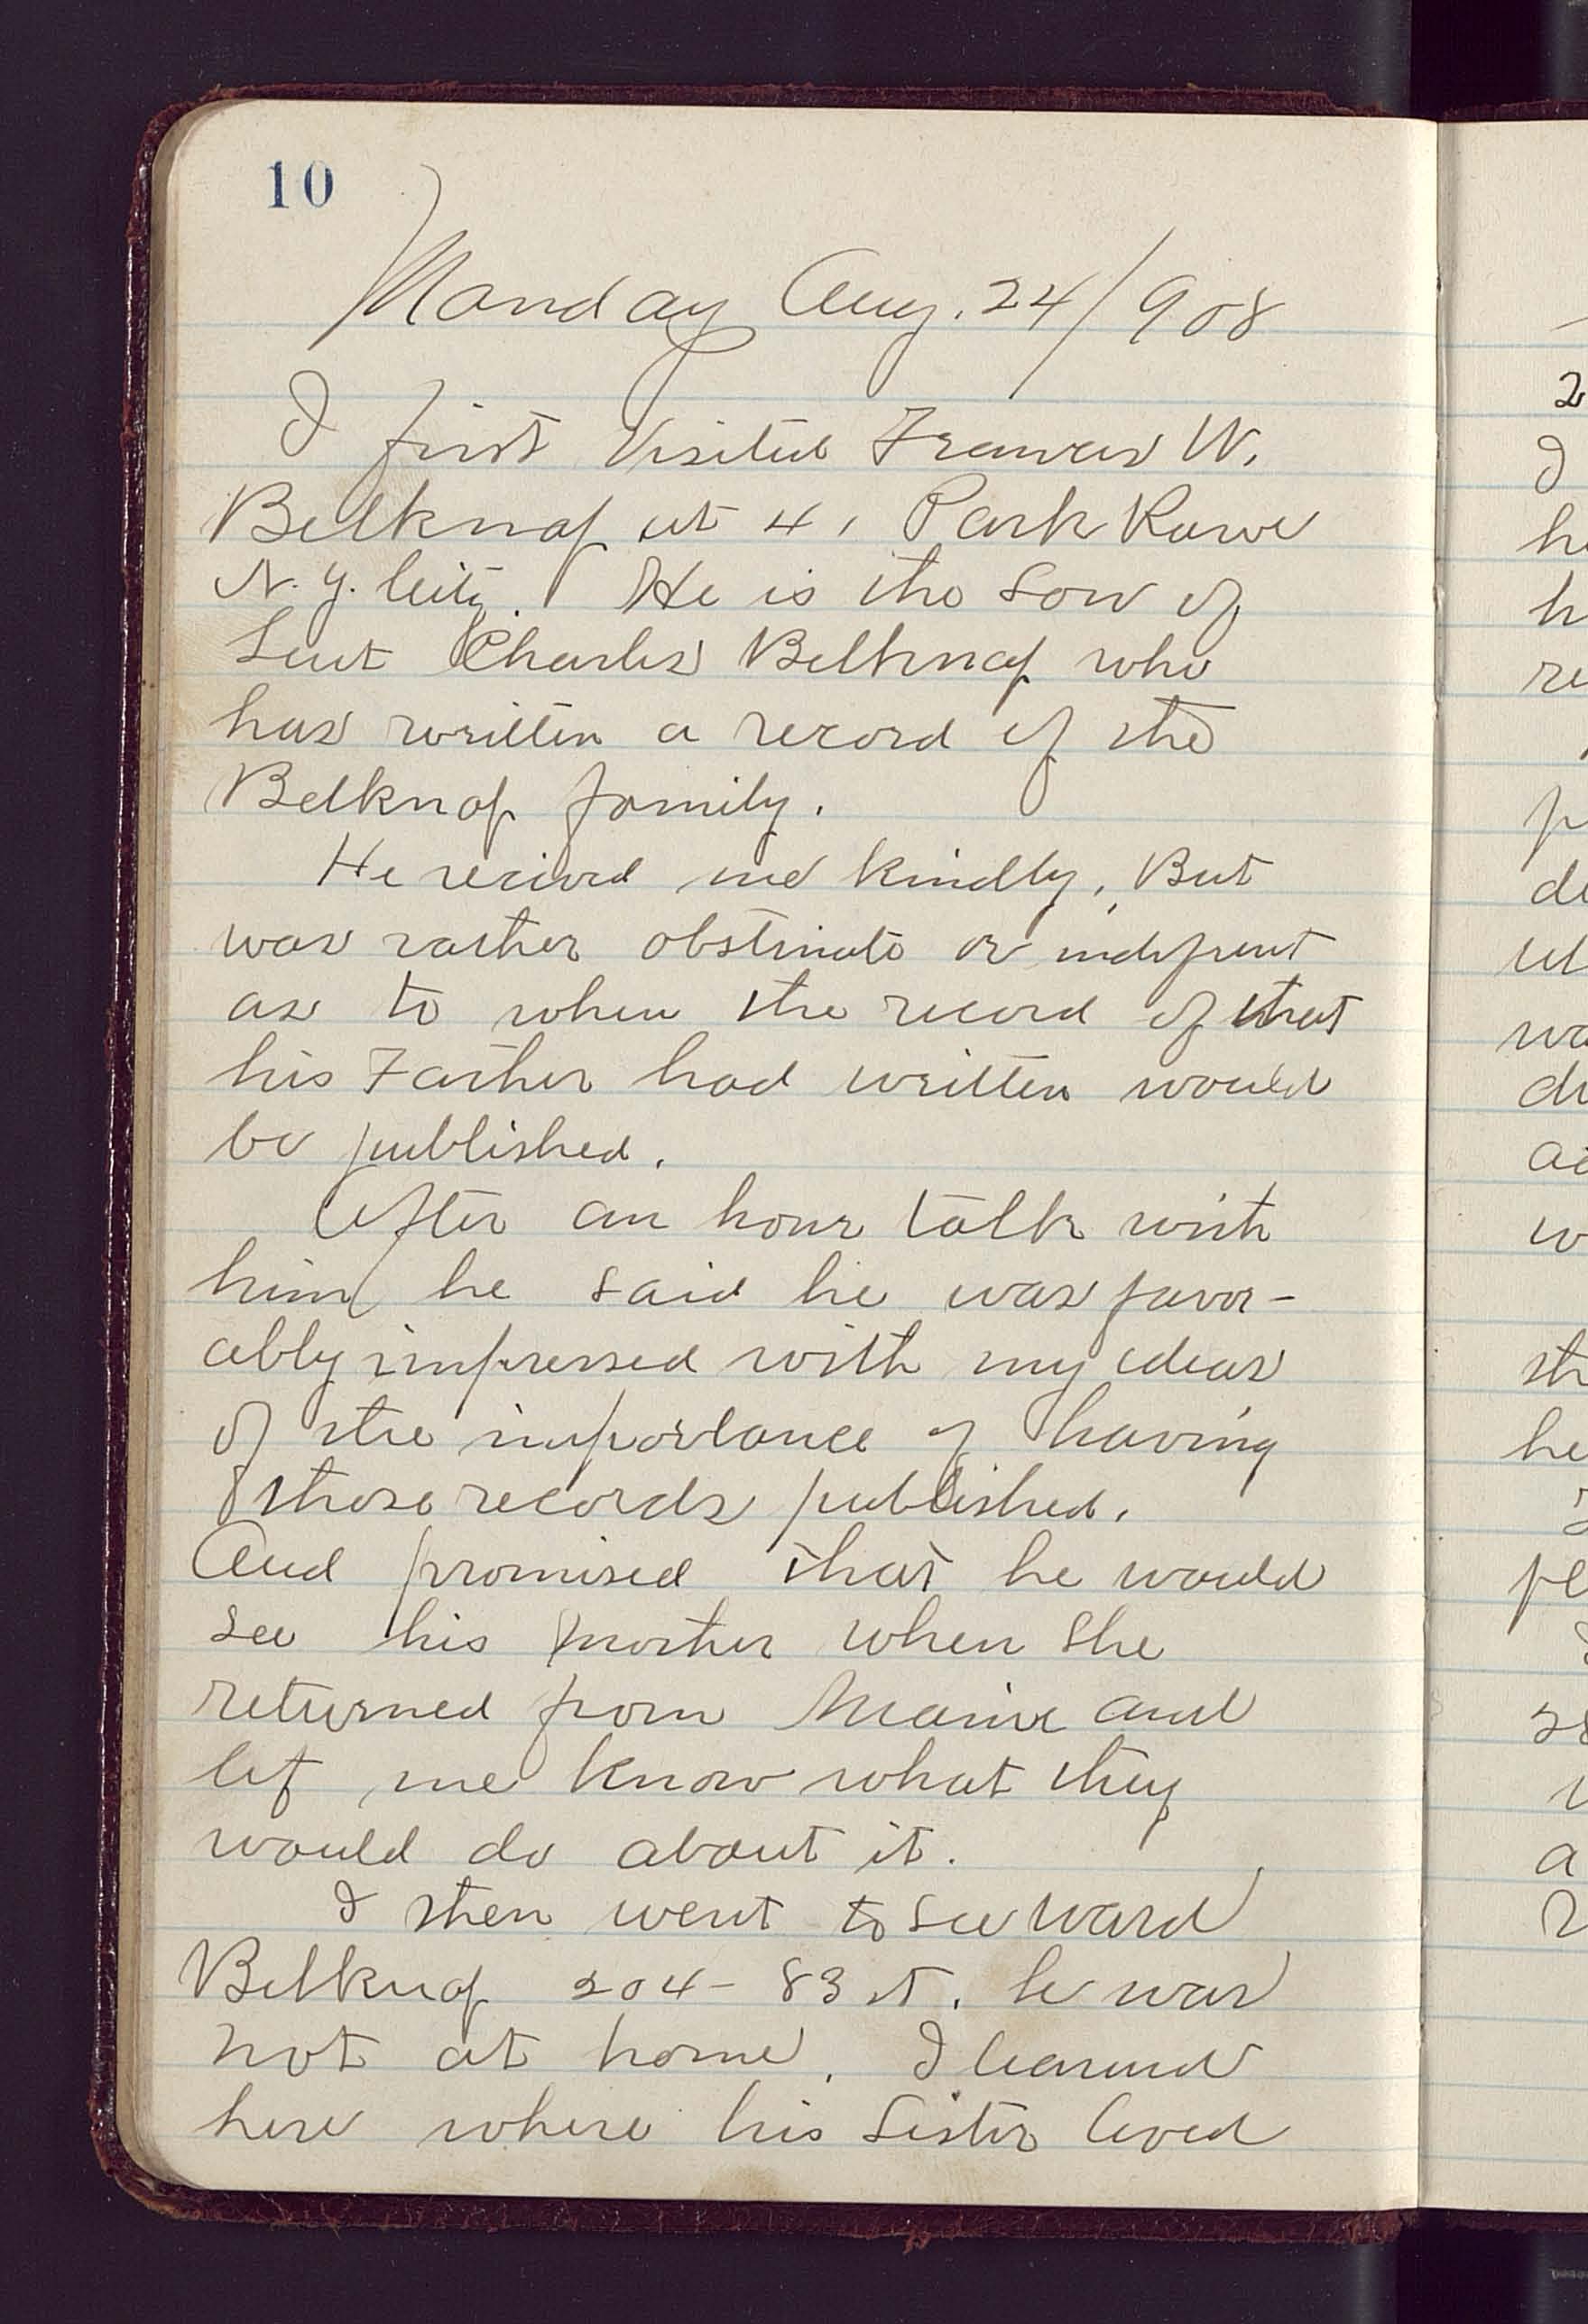 10
Monday Aug. 24/908
I first visited Frances W.
Belknap at 41 Park Rowe
N. Y. City. He is the son of
Leut Charles Belknap who
has written a record of the
Belknap family.
He recived me kindly, But
was rather obstinate or
as to when the record of that
his Father had written would
be published.
After an hour talk with
him he said he was favor-
ably impressed with my ideas
of the importance of having
those records published.
And promised that he would
see his mother when she
returned from Maine and
let me know what they
would do about it.
I then went to see Ward
Belknap 204 - 83 st. he was
not at home. I learned
here where his sister lived